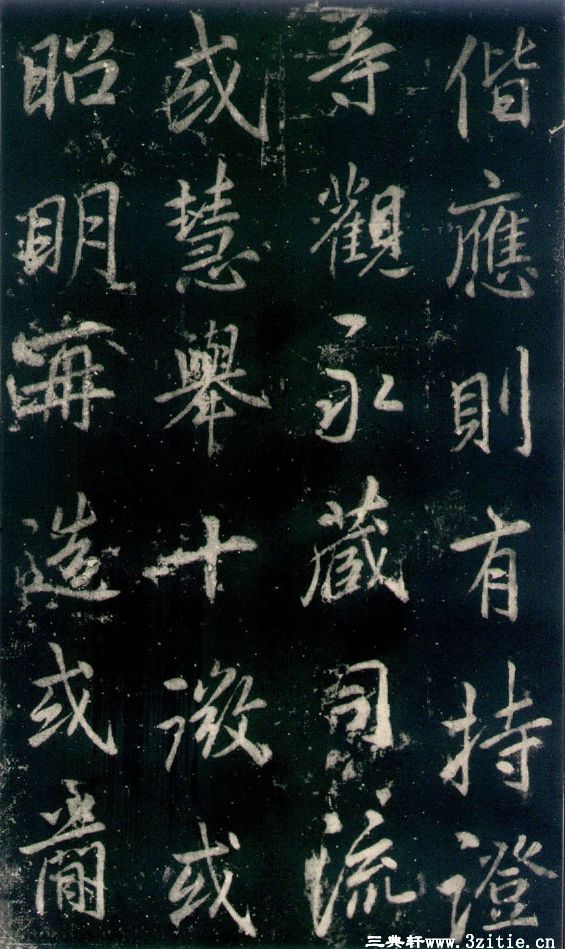 偕應則有持證
等觀永藏司流
或慧舉十徵或
昭明再造或蕭
三典轩www.3zitie.cn